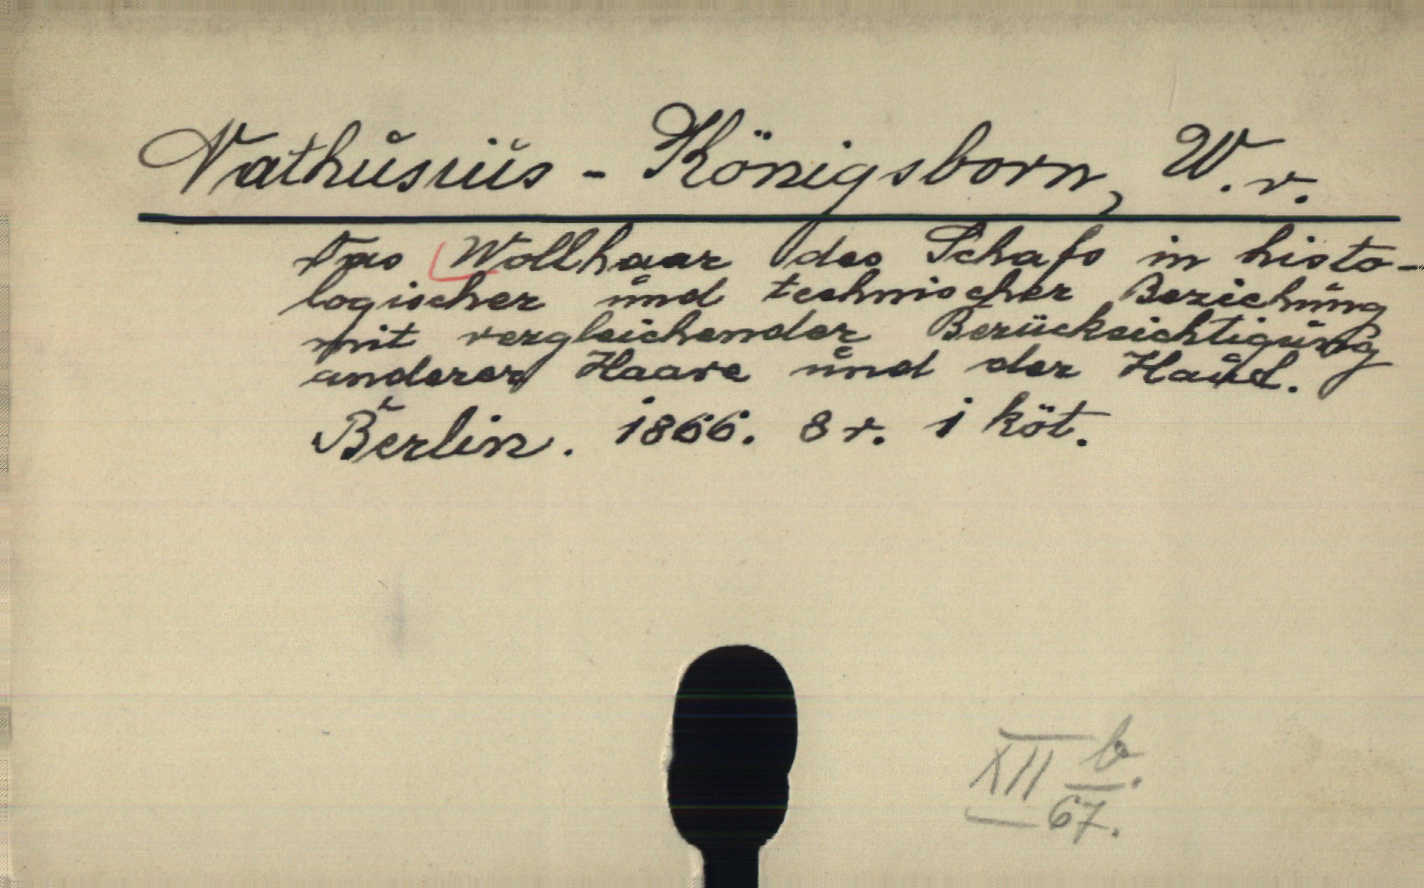 Nathusius - Königsborn, W. v.
Das Wollhaar des Schafs in histo-
logischer und technischer Beziehung
mit vergleichender Berücksichtigung
anderer Haare und der Haut.
Berlin. 1866. 8 r. 1 köt.
XII b.
67.